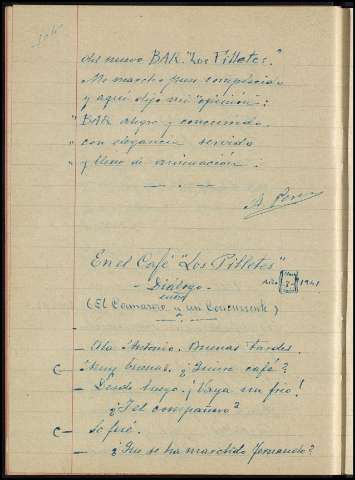 del nuevo BAR. "Los Pilletes."
Me marcho pues complacido
y aquí dejo mi "opinión":
"BAR alegre y concurrido
" con elegancia servido
" y lleno de animación".
En el Café "Los Pilletes"
- Diálogo -
entre
(El Camarero y un Concurrente)
Año 1941
- Ola Antonio. Buenas tardes.
C- ¡Muy buenas. ¿Quiere café?
- Desde luego. ¡Vaya un frío!
¿Y el compañero?
C- Se fué.
- ¿Que se ha marchado Fernando?